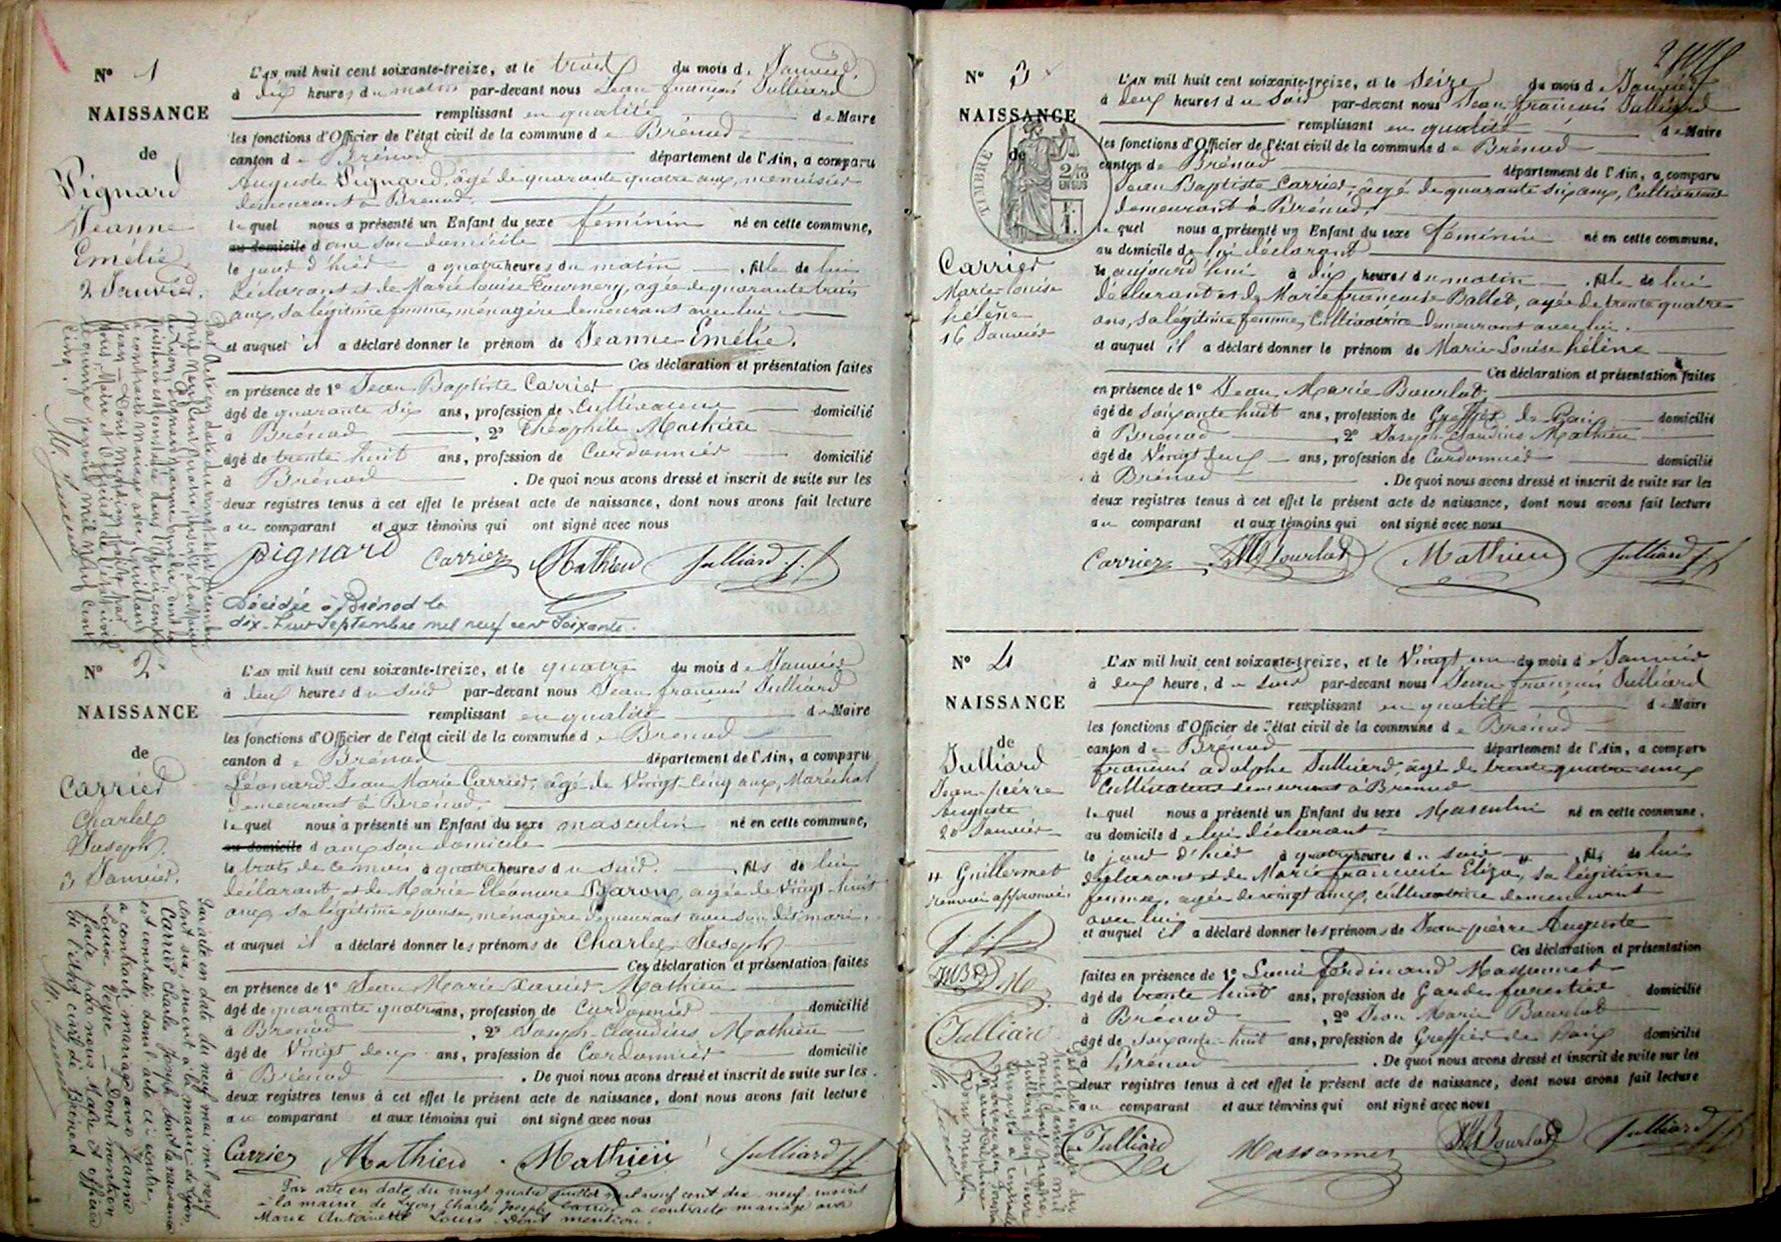 N° 1
NAISSANCE
de
Pignard
Jeanne
Emélie
2 Janvier.
L'AN mil huit cent soixante-treize, et le trois du mois de Janvier
à dix heures du matin par-devant nous Jean françois Julliard
remplissant en qualité de Maire
les fonctions d'Officier de l'état civil de la commune de Brénod
canton de Brénod département de l'Ain, a comparu
Auguste Pignard, âgé de quarante quatre ans, menuisier
demeurant à Brénod.
lequel nous a présenté un Enfant du sexe féminin né en cette commune,
au domicile dans son domicile
le jour d'hier à quatre heures du matin, fille de lui
déclarant et de Marie Louise agée de quarante trois
ans, sa légitime femme, ménagère demeurant avec lui
et auquel il a déclaré donner le prénom de Jeanne Emélie.
Ces déclaration et présentation faites
en présence de 1° Jean Baptiste Carrier
âgé de quarante six ans, profession de Cultivateur domicilié
à Brénod, 2° Théophile Mathieu
âgé de trente huit ans, profession de Cordonnier domicilié
à Brénod. De quoi nous avons dressé et inscrit de suite sur les
deux registres tenus à cet effet le présent acte de naissance, dont nous avons fait lecture
au comparant et aux témoins qui ont signé avec nous
Pignard Carrier Mathieu Julliard J. f.
Décédée à Brénod le
dix-huit Septembre mil neuf cent Soixante.
N° 2
NAISSANCE
de
Carrier
Charles
Joseph.
3 Janvier.
L'AN mil huit cent soixante-treize, et le quatre du mois de Janvier
à deux heures du soir par-devant nous Jean françois Julliard
remplissant en qualité de Maire
les fonctions d'Officier de l'état civil de la commune de Brénod
canton de Brénod département de l'Ain, a comparu
Léonard Jean Marie Carrier, âgé de Vingt cinq ans, Maréchal
demeurant à Brénod.
lequel nous a présenté un Enfant du sexe masculin né en cette commune,
au domicile dans son domicile
le trois de ce mois à quatre heures du soir, fils de lui
déclarant et de Marie Eléonore Baron, agée de Vingt huit
ans, sa légitime épouse, ménagère demeurant avec son dit mari.
et auquel il a déclaré donner les prénoms de Charles Joseph
Ces déclaration et présentation faites
en présence de 1° Jean Marie Xavier Mathieu
âgé de quarante quatre ans, profession de Cordonnier domicilié
à Brénod, 2° Joseph Claudius Mathieu
âgé de Vingt deux ans, profession de Cordonnier domicilié
à Brénod. De quoi nous avons dressé et inscrit de suite sur les
deux registres tenus à cet effet le présent acte de naissance, dont nous avons fait lecture
au comparant et aux témoins qui ont signé avec nous
Carrier Mathieu Mathieu Julliard J.f.
Par acte en date du vingt quatre juillet mil neuf cent dix neuf inscrit
à la mairie de Lyon Charles Joseph Carrier a contracté mariage avec
Marie Antoinette Louis. Dont mention.
Par acte en date du neuf mai mil neuf
cent six, inscrit à la mairie de Lyon,
Carrier Charles Joseph dont la naissance
est constatée dans l'acte ci-contre,
a contracté mariage avec Jeanne
Louise Veyre - Dont mention
faite par nous Maire et officier
de l'état civil de Brénod
N° 3
NAISSANCE
de
TIMBRE
2/10
EN SUS
F.
1.
Carrier
Marie-Louise
hélène
16 Janvier
L'AN mil huit cent soixante-treize, et le Seize du mois de Janvier
à deux heures du Soir par-devant nous Jean françois Julliard
remplissant en qualité de Maire
les fonctions d'Officier de l'état civil de la commune de Brénod
canton de Brénod département de l'Ain, a comparu
Jean Baptiste Carrier âgé de quarante six ans, Cultivateur
demeurant à Brénod.
lequel nous a présenté un Enfant du sexe féminin né en cette commune,
au domicile de lui déclarant
le aujourd'hui à dix heures du matin, fille de lui
déclarant et de Marie françoise Ballet, agée de trente quatre
ans, sa légitime femme, Cultivatrice demeurant avec lui.
et auquel il a déclaré donner le prénom de Marie Louise hélène
Ces déclaration et présentation faites
en présence de 1° Jean Marie Bourlot
âgé de soixante huit ans, profession de Greffier de Paix domicilié
à Brénod, 2° Joseph Claudius Mathieu
âgé de Vingt deux ans, profession de Cordonnier domicilié
à Brénod. De quoi nous avons dressé et inscrit de suite sur les
deux registres tenus à cet effet le présent acte de naissance, dont nous avons fait lecture
au comparant et aux témoins qui ont signé avec nous
Carrier JMBourlot Mathieu Julliard J.f.
N° 4
NAISSANCE
de
Julliard
Jean-pierre
Auguste
20 Janvier
" Guillermet
renvoi approuvé.
J. f.
JMB
Julliard
L'AN mil huit cent soixante-treize, et le Vingt un du mois de Janvier
à deux heures du soir par-devant nous Jean françois Julliard
remplissant en qualité de Maire
les fonctions d'Officier de l'état civil de la commune de Brénod
canton de Brénod département de l'Ain, a comparu
françois adolphe Julliard, âgé de trente quatre ans
Cultivateur demeurant à Brénod
lequel nous a présenté un Enfant du sexe Masculin né en cette commune,
au domicile de lui déclarant
le jour d'hier à quatre heures du soir, fils de lui
déclarant et de Marie françoise Eliza " sa légitime
femme, agée de vingt ans, cultivatrice demeurant
avec lui
et auquel il a déclaré donner les prénoms de Jean-pierre Auguste
Ces déclaration et présentation
faites en présence de 1° Louis Ferdinand Massonnet
âgé de trente huit ans, profession de Garde forestier domicilié
à Brénod, 2° Jean Marie Bourlot
âgé de soixante-huit ans, profession de Greffier de Paix domicilié
à Brénod. De quoi nous avons dressé et inscrit de suite sur les
deux registres tenus à cet effet le présent acte de naissance, dont nous avons fait lecture
au comparant et aux témoins qui ont signé avec nous
Julliard Massonnet JMBourlot Julliard J.f.